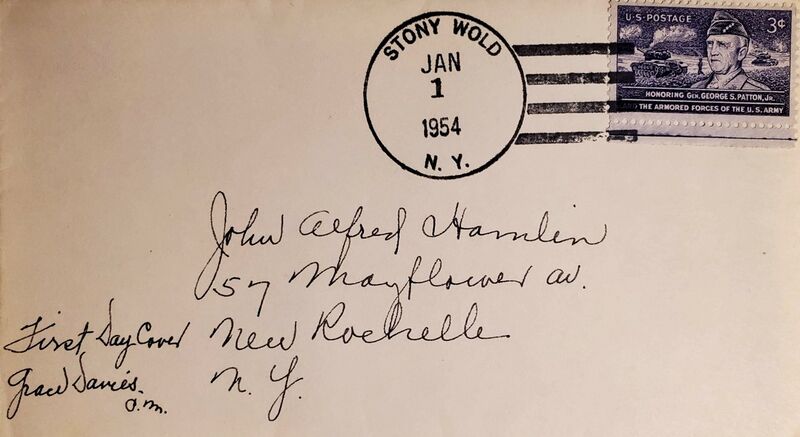 STONY WOLD
JAN
1
1954
N. Y.
U·S·POSTAGE 3¢
HONORING GEN. GEORGE S. PATTON, JR.
THE ARMORED FORCES OF THE U. S. ARMY
John Alfred Hamlin
57 Mayflower av.
New Rochelle
N. Y.
First Day Cover
Grace Davies.
P.M.